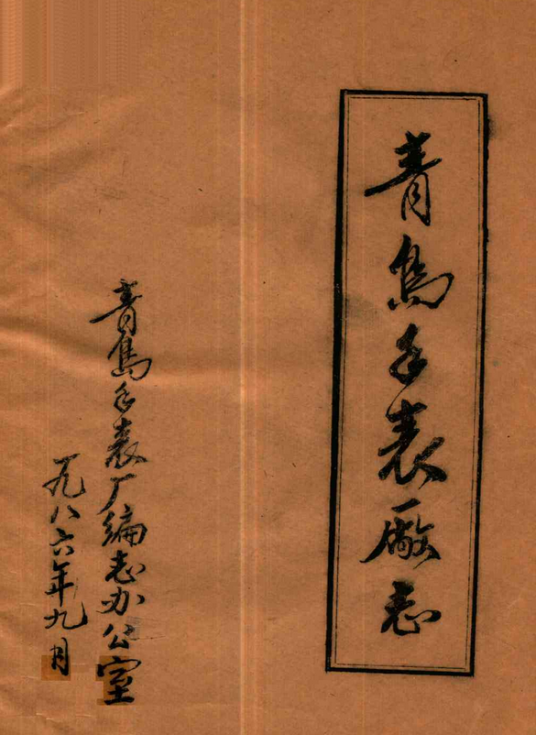 青島手表廠志
青島手表厂編志办公室
一九八六年九月